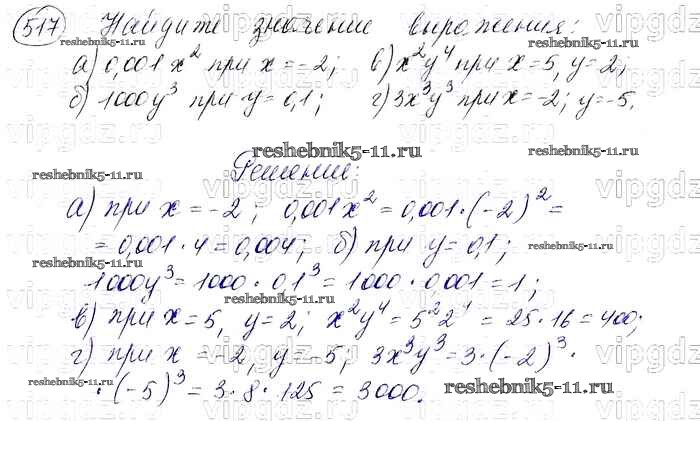 517 Найдите значение выражения:
а) 0,001x² при x=-2; в) x²y⁴ при x=5, y=2;
б) 1000y³ при y=0,1; г) 3x³y³ при x=-2; y=-5.
Решение:
а) при x=-2; 0,001x²=0,001·(-2)²=
=0,001·4=0,004; б) при y=0,1;
1000y³=1000·0,1³=1000·0,001=1;
в) при x=5, y=2; x²y⁴=5²2⁴=25·16=400;
г) при x=-2, y=-5; 3x³y³=3·(-2)³·
·(-5)³=3·8·125=3000.
reshebnik5-11.ru
vipgdz